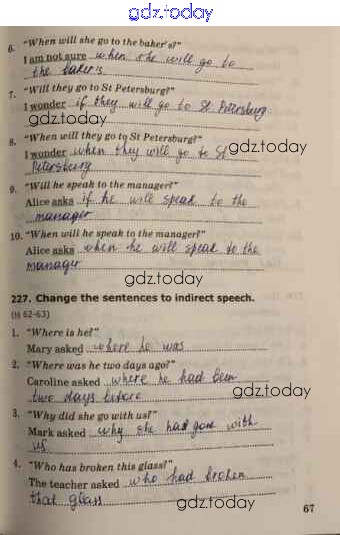 gdz.today
6. "When will she go to the baker's?"
I am not sure when she will go to
the baker's
7. "Will they go to St Petersburg?"
I wonder if they will go to St Petersburg
gdz.today
8. "When will they go to St Petersburg?"
gdz.today
I wonder when they will go to St
Petersburg
9. "Will he speak to the manager?"
Alice asks if he will speak to the
manager
10. "When will he speak to the manager?"
Alice asks when he will speak to the
manager
gdz.today
227. Change the sentences to indirect speech.
(§§ 62-63)
1. "Where is he?"
Mary asked where he was
2. "Where was he two days ago?"
Caroline asked where he had been
gdz.today
two days before
3. "Why did she go with us?"
Mark asked why she had gone with
us
4. "Who has broken this glass?"
The teacher asked who had broken
that glass
gdz.today
67